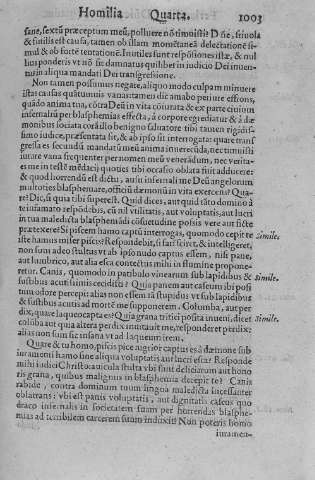 Homilia Quarta. 1003
sane, sextū præceptum meū, polluere nō timuisti: Dñe, friuola
& futilis est causa, tamen ob illam delectationē si-
mul & ob sorte tentationē. Inutiles sunt respōsiones istæ, & nul
lius ponderis vt nō sic damnatus quilibet in iudicio Dei inuen-
in aliqua mandati Dei transgressione.
Non tamen possumus negare, aliquo modo culpam minuere
istas causas quātumuis vanas: tamen dic amabo periure effrons,
quādo anima tua, cōtra Deū in vita cōiurata & ex parte ciuium
infernaliū per blasphemias effecta, à corpore egrediatur & à dæ
monibus sociata corā illo benigno saluatore tibi tamen rigidis-
simo iudice, præsentata sit, & ab ipso sit interrogata: quare trans
gressa es secundū mandatū meū anima inuerecūda, nec timuisti
iurare vana frequenter per nomen meū venerādum, nec verita-
es me in testē mēdacij quoties tibi occasio oblata fuit adducere:
& quod horrendū est dictu, ausu infernali me Deū angelorum
multoties blasphemare, officiū dæmonū in vita exercens? Quæ-
re? Dic, si qua tibi superest. Quid dices, aut quid tāto domino à
te infamato respōdebis, cū nil vtilitatis, aut voluptatis, aut lucri
in tua maledicta blasphemādi cōsuetudine possis vere aut ficte
prætexere? Si piscem hamo captū interrogas, quomodo cepit te
iste hamus miser piscis? Respondebit, si fari sciret, & intelligeret,
non sum adeo stultus vt ab ipso nudo captus essem, nisi pane,
aut lumbrico, aut alia esca contectus mihi in flumine propone-
retur. Canis, quomodo in patibulo vinearum sub lapidibus &
fustibus acutissimis cecidisti? Quia panem aut caseum ibi posi
tum odore percepi: alias non essem tā stupidus vt sub lapidibus
& fustibus acutis ad mortē me supponerem. Columba, aut per
dix, quare laqueo capta es? Quia grana tritici posita inueni, dicet
colūba aut quia altera perdix inuitauit me, responderet perdix:
alias non sum sic insana vt ad laqueum irem.
Quare & tu homo, piscis pice nigrior captus es à dæmone sub
iuramenti hamo sine aliqua voluptatis aut lucri esca? Responde
mihi iudici Christo: aut cula stulta vbi sunt deliciarum aut hono
ris grana, quibus malignus in blasphemia decepit te? Canis
rabide, contra dominum tuum lingua maledicta incessanter
oblatrans: vbi est panis voluptatis, aut dignitatis caseus quo
draco infernalis in societatem suam per horrendas blasphe-
mias ad terribilem carcerem suum induxit? Non poteris homo
iuramen-
Simile.
Simile.
Simile.